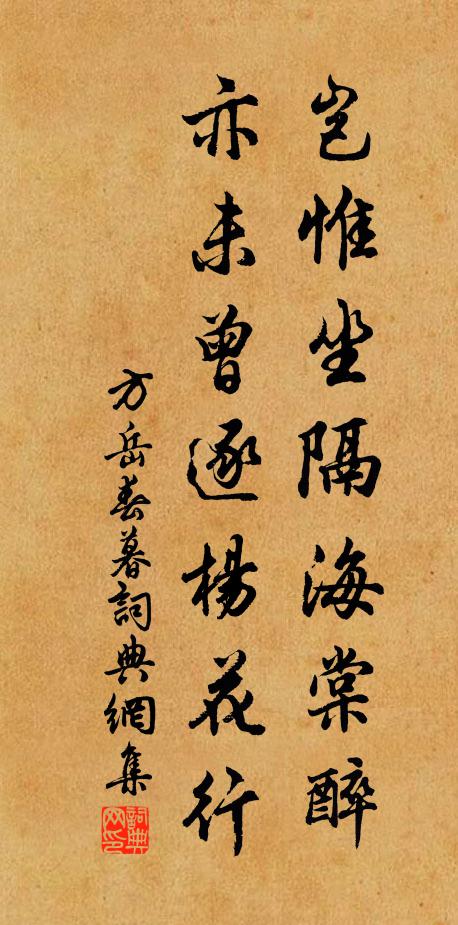 岂惟坐隔海棠醉
亦未曾逐楊花行
方岳春暮詞典網集
詞典网印